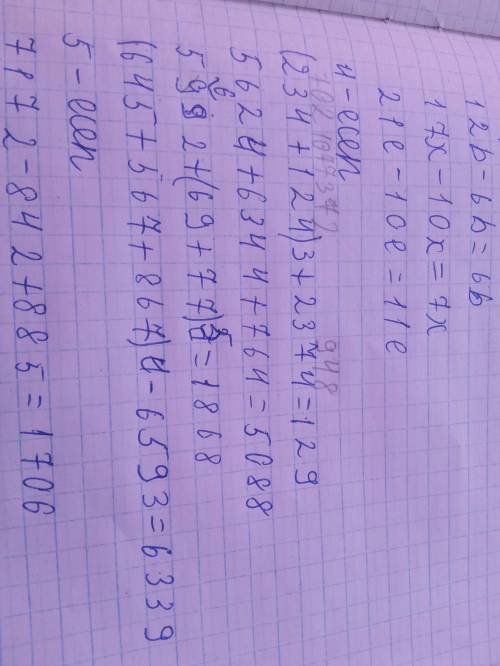 12b-6b=6b
17x-10x=7x
21e-10e=11e
4-есеп
948
(234+124)3+237 4=129
562 4+634 4+764=5088
2+(69+77) =1868
(645+567+867)4-6593=6339
5-есеп
717 2-842+885=1706